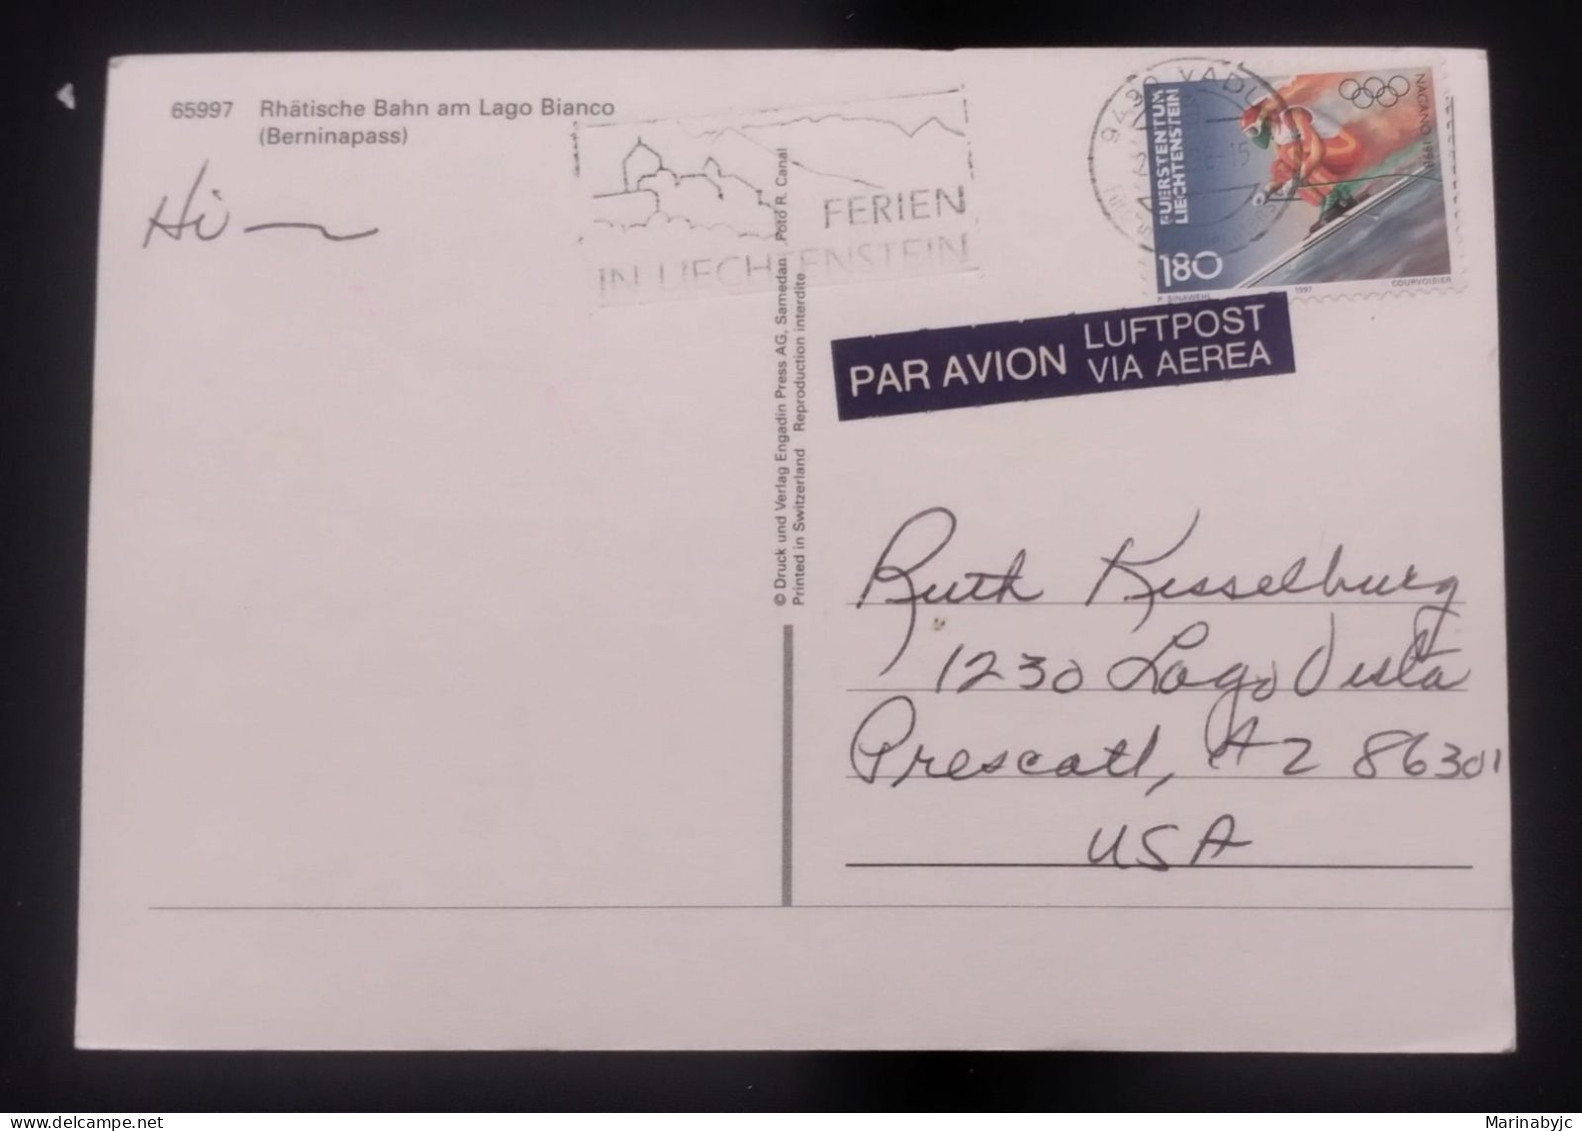 65997 Rhätische Bahn am Lago Bianco
(Berninapass)
Hi
FERIEN
IN LIECHTENSTEIN
9490 VADUZ
FUERSTENTUM
LIECHTENSTEIN
NAGANO 1998
180
P. SINAWEHL 1997 COURVOISIER
PAR AVION LUFTPOST
VIA AEREA
© Druck und Verlag Engadin Press AG, Samedan Foto R. Canal
Printed in Switzerland Reproduction interdite
Ruth Kesselburg
1230 Lago Vista
Prescott, AZ 86301
USA
Marinabyjc